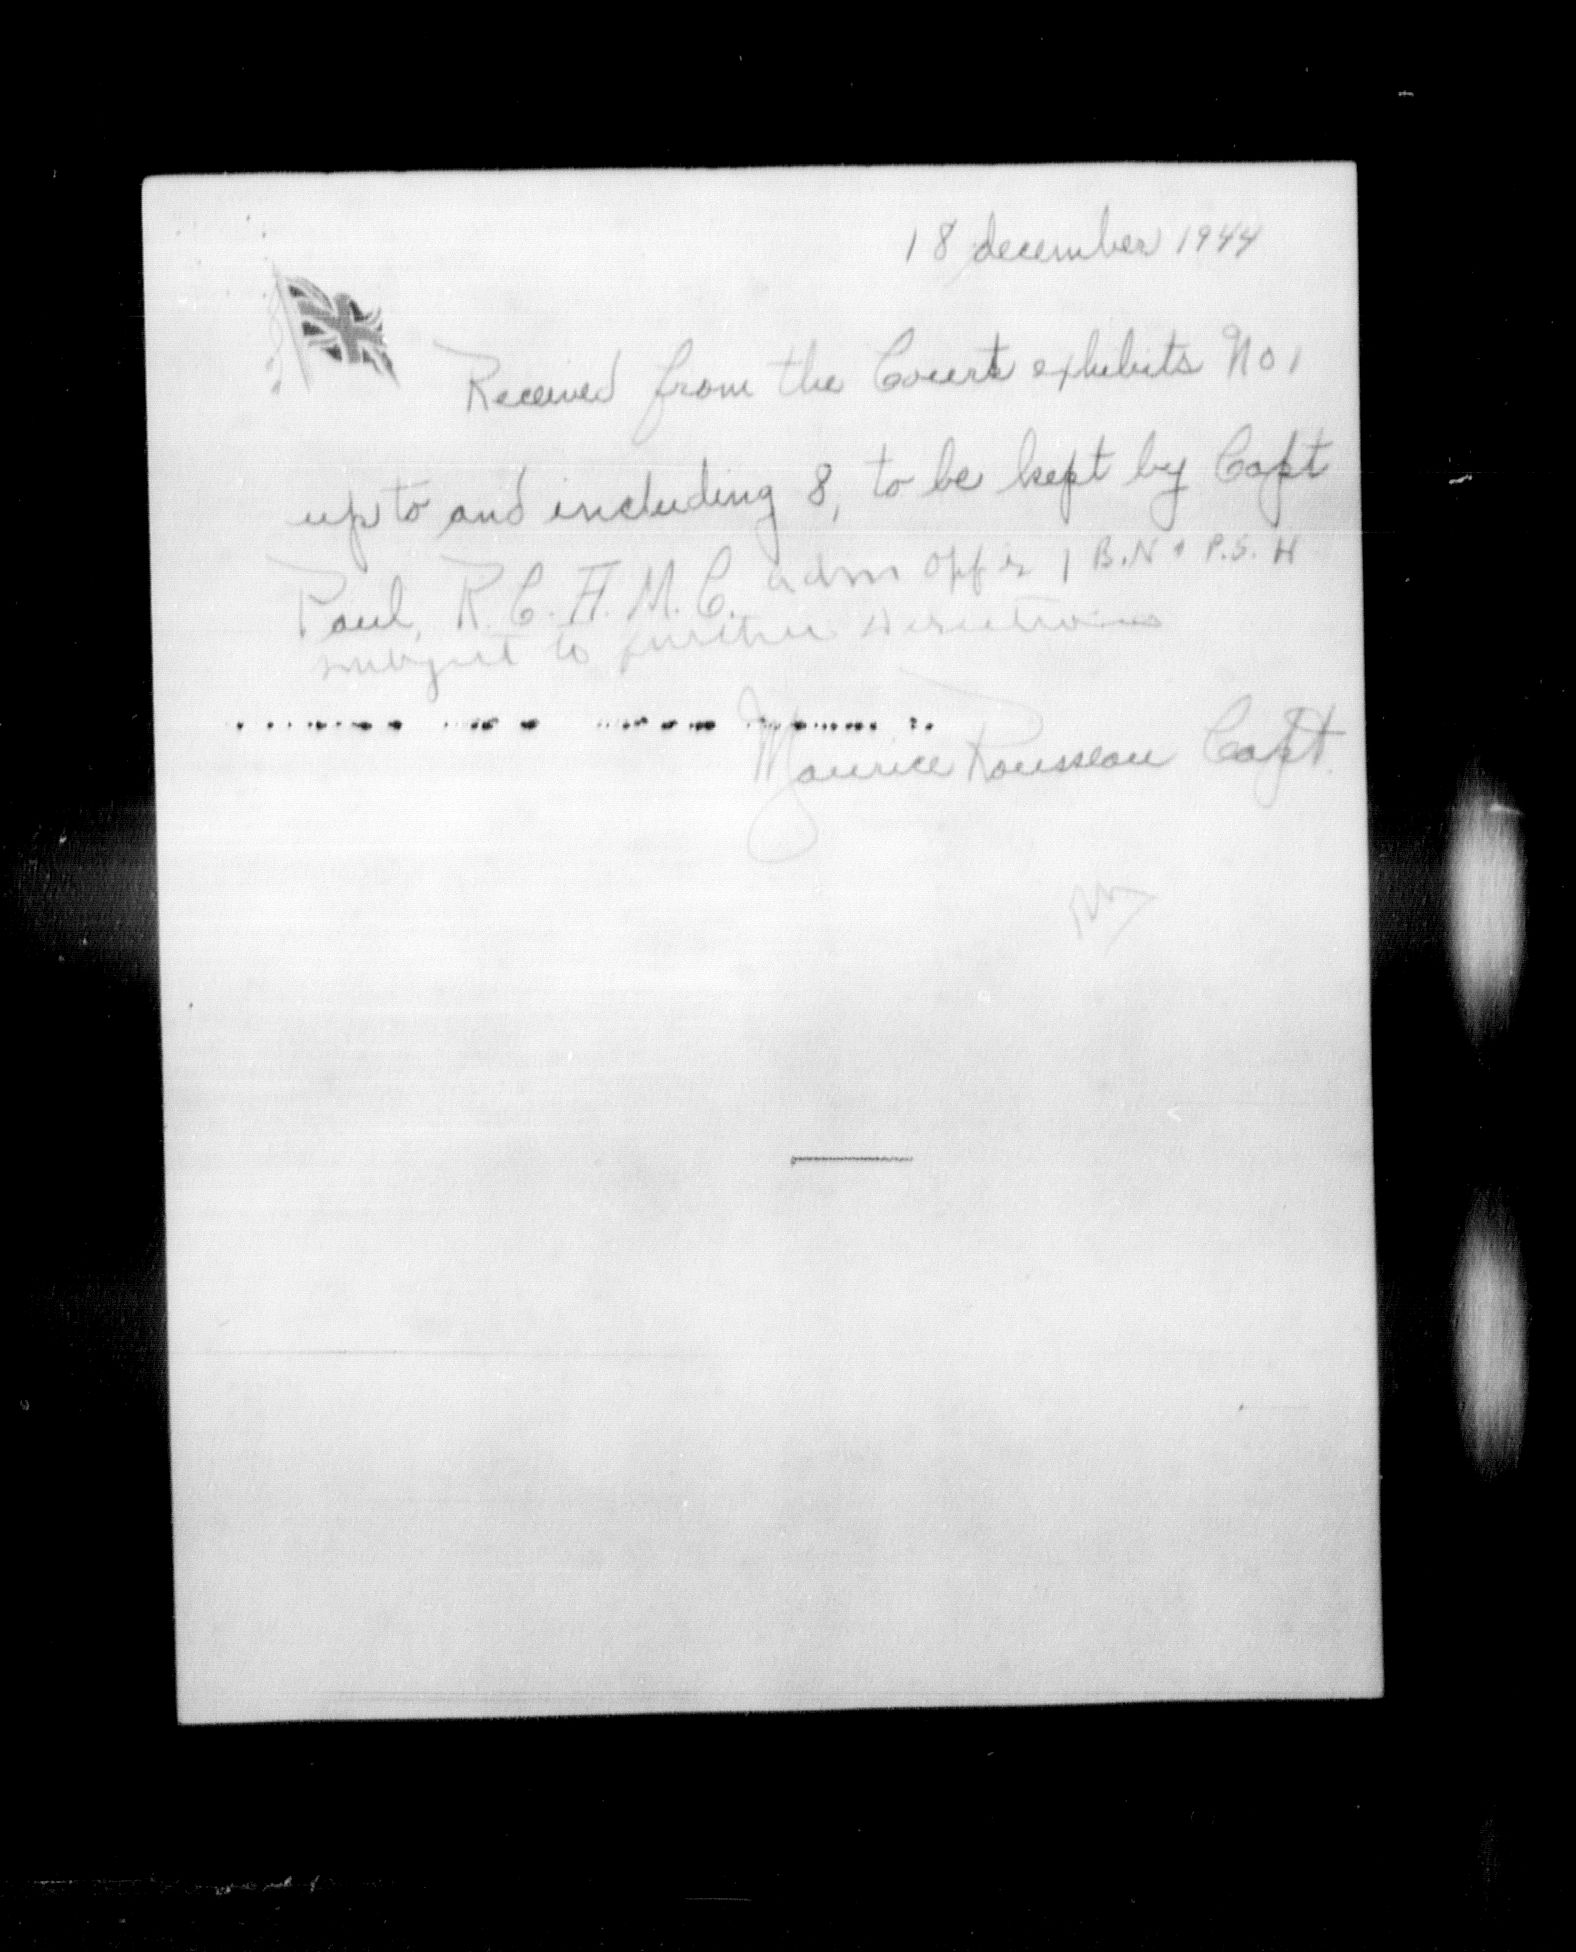 18 december 1944
Received from the Court exhibits No 1
up to and including 8, to be kept by Capt
Paul, R.C.A.M.C. adm offr 1 B.N.P.S. H
subject to further directions
Maurice Rousseau Capt.